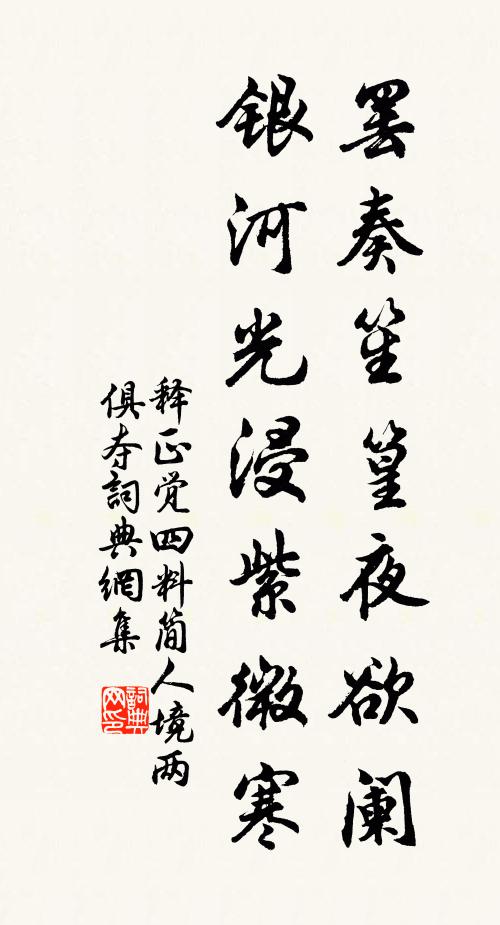 罢奏笙篁夜欲阑
银河光浸紫微寒
释正觉四料简人境两
俱夺詞典網集
詞典网印